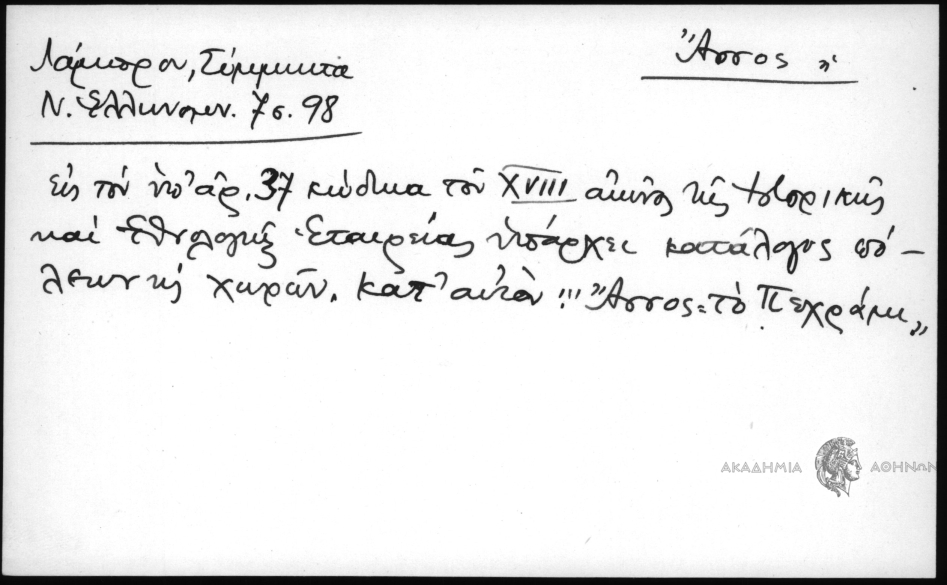 Λάμπρου, Σύμμικτα
Ν. Ἑλληνομν. 7 σ. 98
Ἄσσος
εἰς τὸν ὑπ' ἀρ. 37 κώδικα τοῦ XVIII αἰῶνος τῆς Ἱστορικῆς
καὶ Ἐθνολογικῆς Ἑταιρείας ὑπάρχει κατάλογος πό-
λεων τις χωρῶν. κατ' αὐτὸν !!! "Ἄσσος = τὸ Πεχράμι"
ΑΚΑΔΗΜΙΑ ΑΘΗΝΩΝ